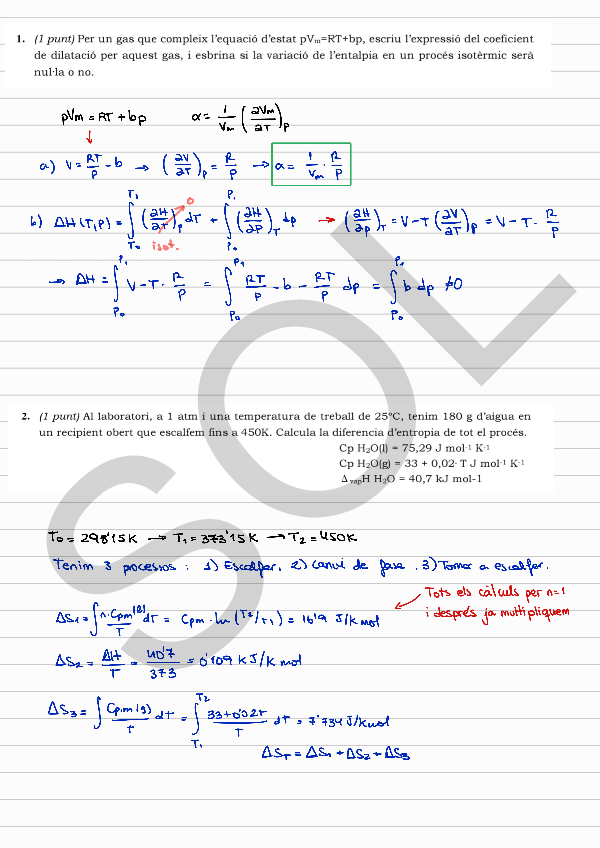 1. (1 punt) Per un gas que compleix l'equació d'estat pVₘ=RT+bp, escriu l'expressió del coeficient
de dilatació per aquest gas, i esbrina si la variació de l'entalpia en un procés isotèrmic serà
nul·la o no.
pVm = RT + bp α = 1/Vm (∂Vm/∂T)p
a) V = RT/P - b → (∂V/∂T)p = R/P → α = 1/Vm · R/P
b) ΔH(T,P) = ∫T₀T₁ (∂H/∂T)p dT + ∫P₀P₁ (∂H/∂P)T dp → (∂H/∂p)T = V - T(∂V/∂T)p = V - T · R/P
0
isot.
→ ΔH = ∫P₀P₁ V - T · R/P = ∫P₀P₁ RT/P - b - RT/P dp = ∫P₀P₁ b dp ≠ 0
2. (1 punt) Al laboratori, a 1 atm i una temperatura de treball de 25ºC, tenim 180 g d'aigua en
un recipient obert que escalfem fins a 450K. Calcula la diferència d'entropia de tot el procés.
Cp H₂O(l) = 75,29 J mol⁻¹ K⁻¹
Cp H₂O(g) = 33 + 0,02· T J mol⁻¹ K⁻¹
Δvap H H₂O = 40,7 kJ mol-1
T₀ = 298'15K → T₁ = 373'15K → T₂ = 450K
Tenim 3 processos : 1) Escalfar, 2) Canvi de fase . 3) Tornar a escalfar.
Tots els càlculs per n=1
i després ja multipliquem
ΔS₁ = ∫ n·Cpm(l)/T dT = Cpm · ln (T₂/T₁) = 16'9 J/K mol
ΔS₂ = ΔH/T = 40'7/373 = 0'109 kJ/K mol
ΔS₃ = ∫ Cp,m(g)/T dT = ∫T₁T₂ 33+0'02T/T dT = 7'734 J/K mol
ΔST = ΔS₁ + ΔS₂ + ΔS₃
SOL